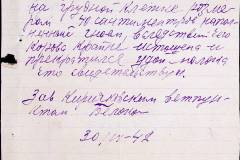 на грудной клетке разме-
ром 40 сантиметров напол-
ненный гноем, вследствии чего
корова крайне истощена и
прекратился удой - молока
что свидетельствую.
Зав. Киришевским ветпун-
ктом
30/IV-42